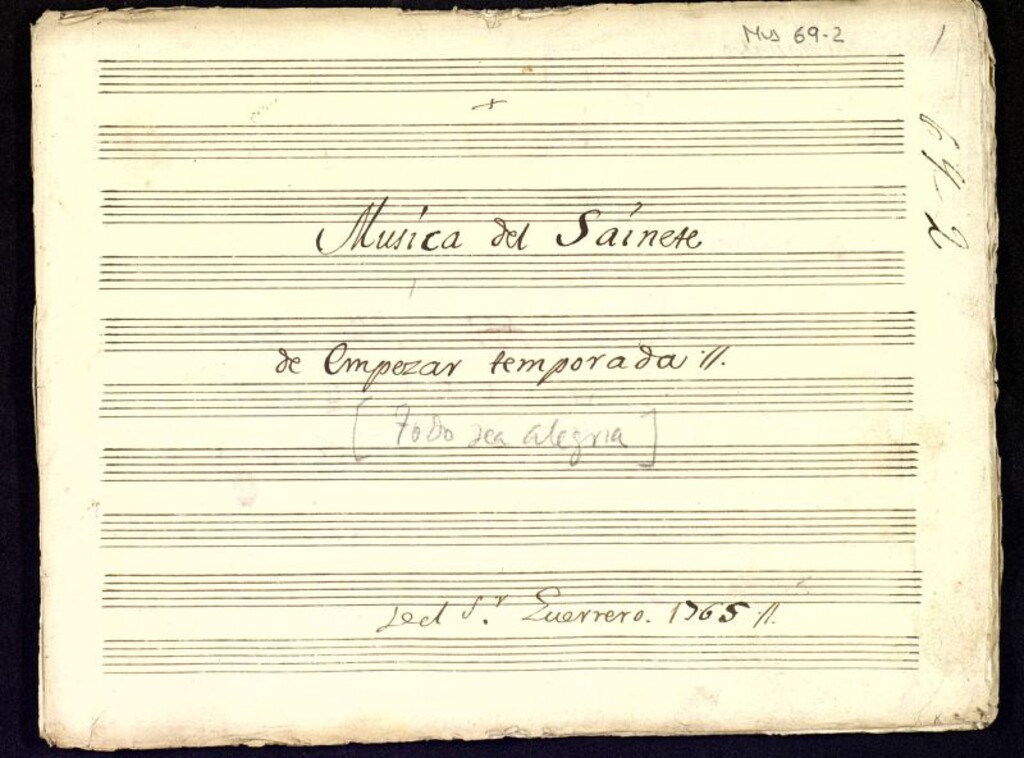 Mus 69-2
1
Musica del Sainete
de Empezar temporada //.
[Todo sea alegria]
del Sr. Guerrero. 1765 //.